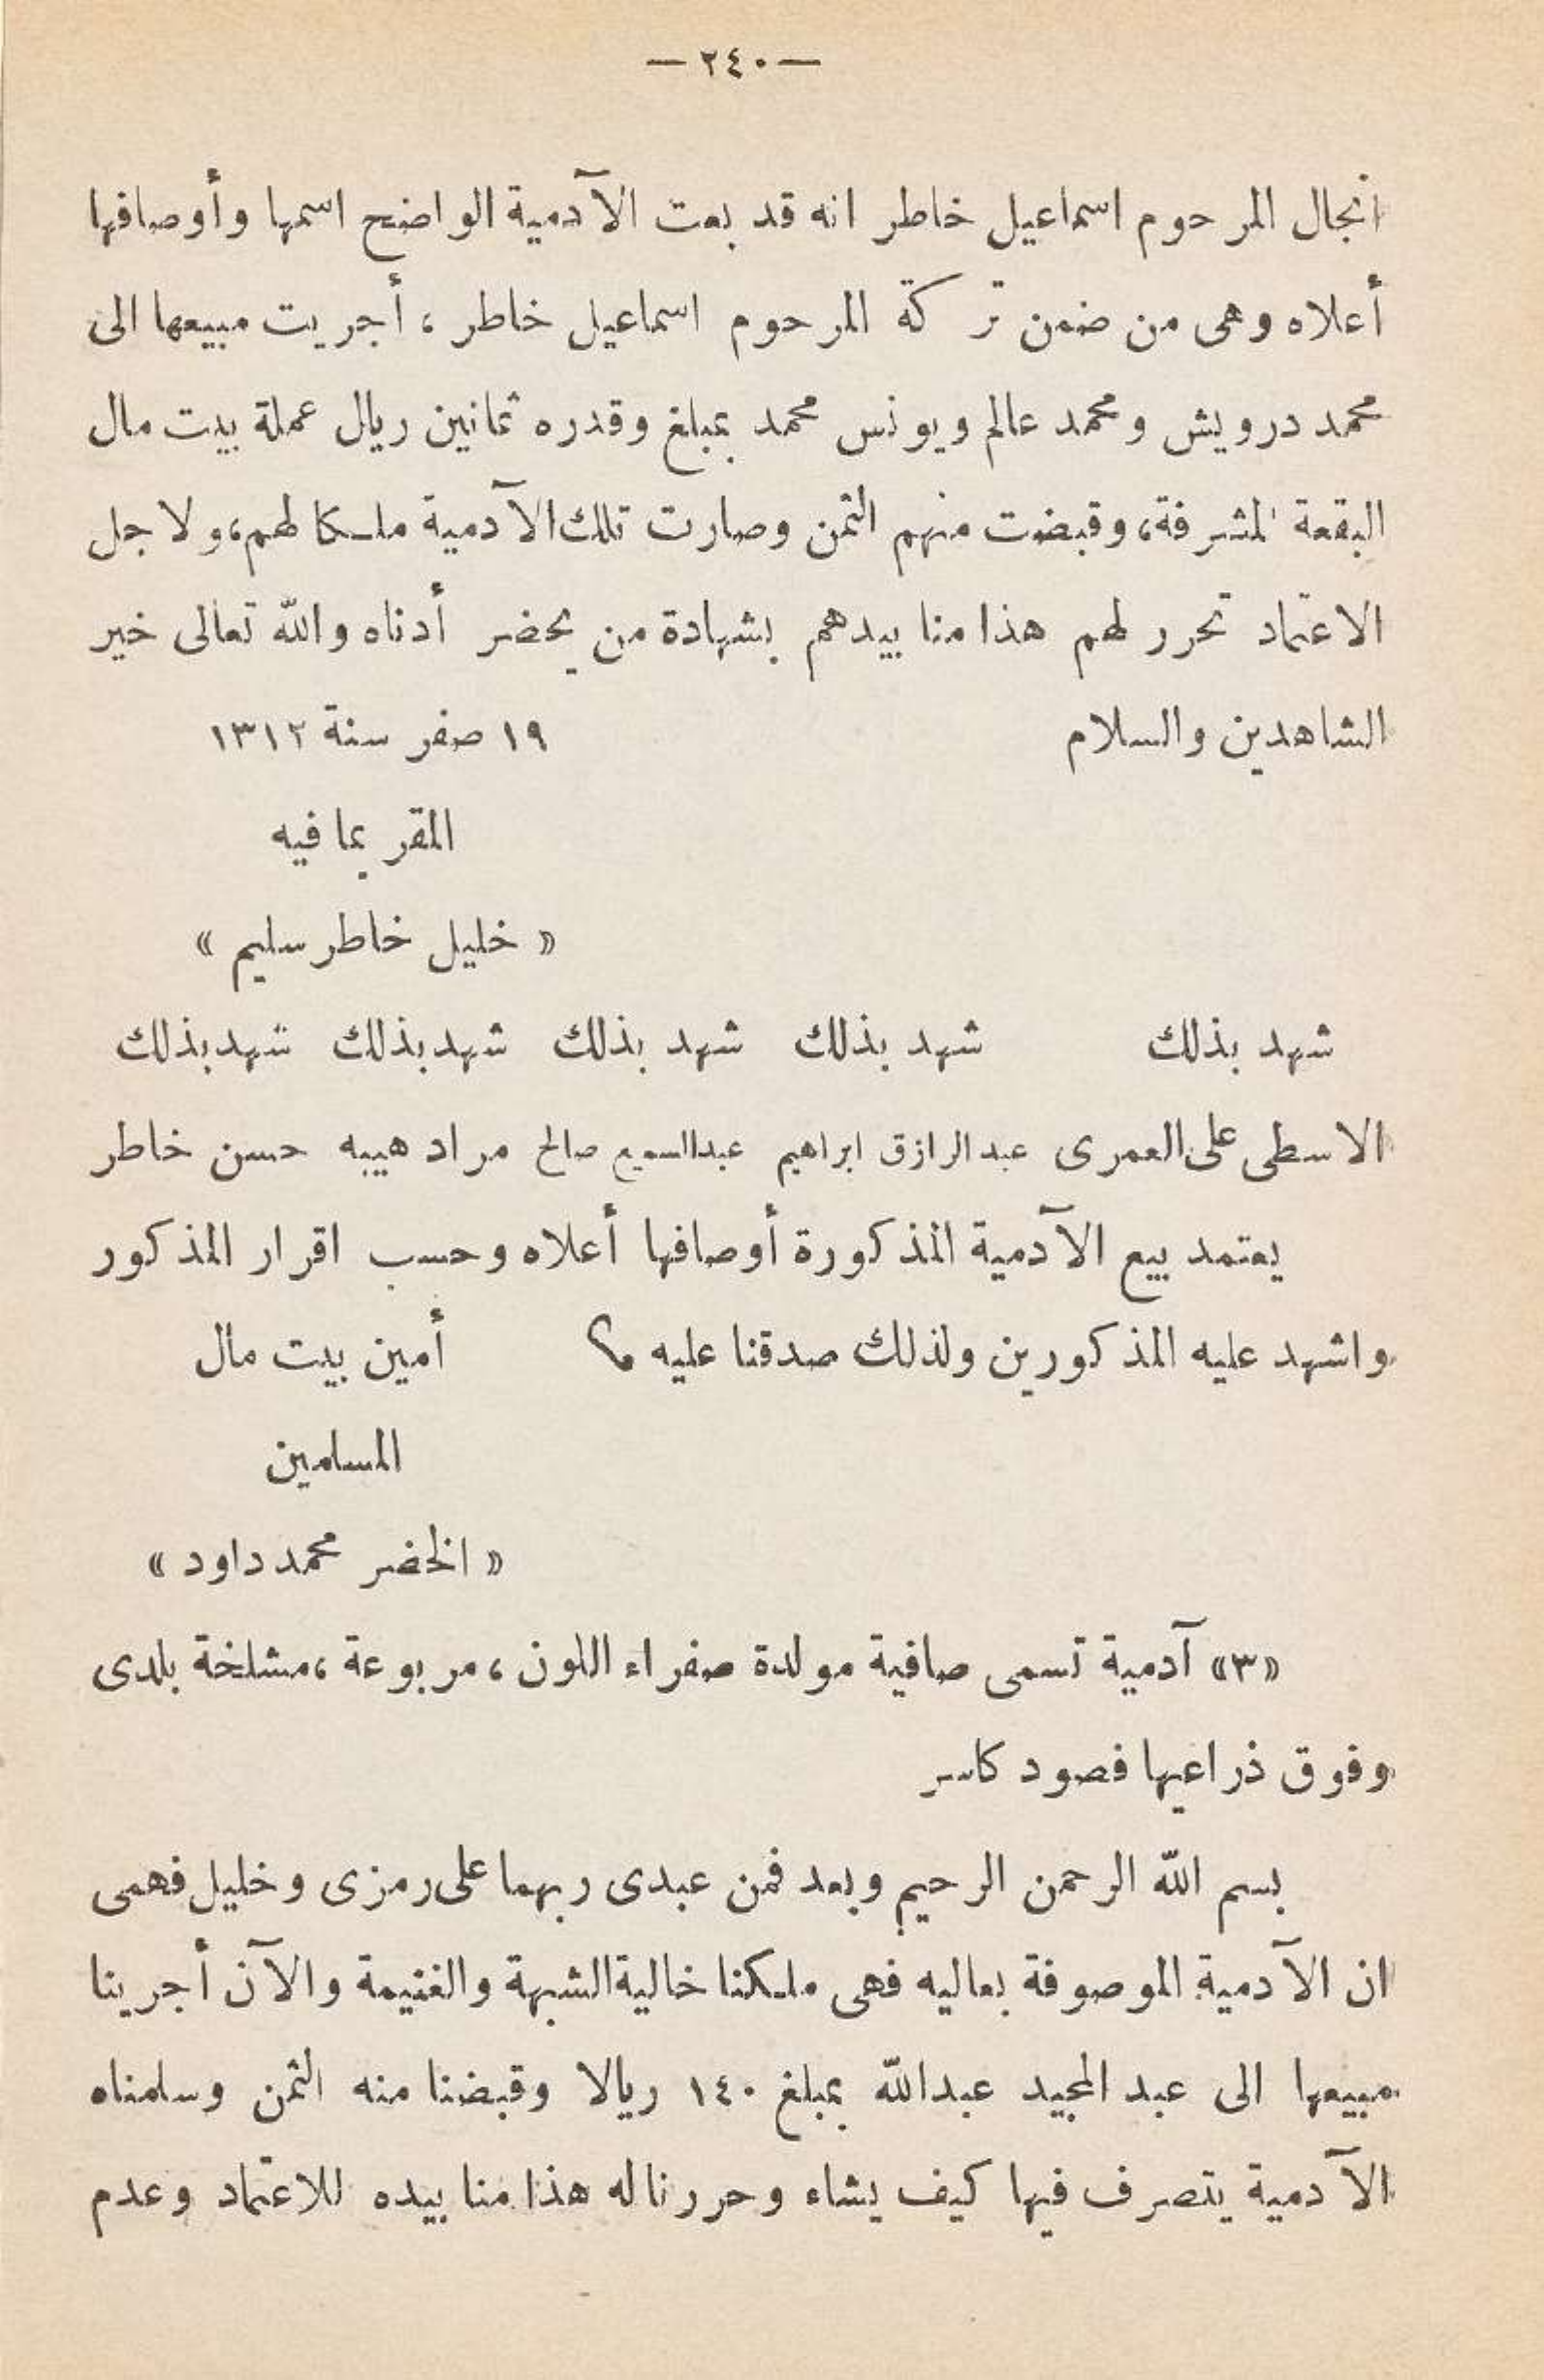 — ٢٤٠ —
أنجال المرحوم اسماعيل خاطر انه قد بعت الآدمية الواضح اسمها وأوصافها
أعلاه وهى من ضمن تركة المرحوم اسماعيل خاطر ، أجريت مبيعها الى
محمد درويش ومحمد عالم ويونس محمد بمبلغ وقدره ثمانين ريال عملة بيت مال
البقعة المشرفة، وقبضت منهم الثمن وصارت تلك الآدمية ملكا لهم، ولاجل
الاعتماد تحرر لهم هذا منا بيدهم بشهادة من يحضر أدناه والله تعالى خير
الشاهدين والسلام ١٩ صفر سنة ١٣١٢
المقر بما فيه
« خليل خاطر سليم »
شهد بذلك شهد بذلك شهد بذلك شهد بذلك شهد بذلك
الاسطى على العمرى عبد الرازق ابراهيم عبد السميع صالح مراد هيبه حسن خاطر
يعتمد بيع الآدمية المذكورة أوصافها أعلاه وحسب اقرار المذكور
واشهد عليه المذكورين ولذلك صدقنا عليه أمين بيت مال
المسلمين
« الخضر محمد داود »
«٣» آدمية تسمى صافية مولدة صفراء اللون ، مربوعة ، مشلخة بلدى
وفوق ذراعيها فصود كاسر
بسم الله الرحمن الرحيم وبعد فمن عبدى ربهما على رمزى وخليل فهمى
ان الآدمية الموصوفة بعاليه فهى ملكنا خالية الشبهة والغنيمة والآن أجرينا
مبيعها الى عبد المجيد عبدالله بمبلغ ١٤٠ ريالا وقبضنا منه الثمن وسلمناه
الآدمية يتصرف فيها كيف يشاء وحررنا له هذا منا بيده للاعتماد وعدم